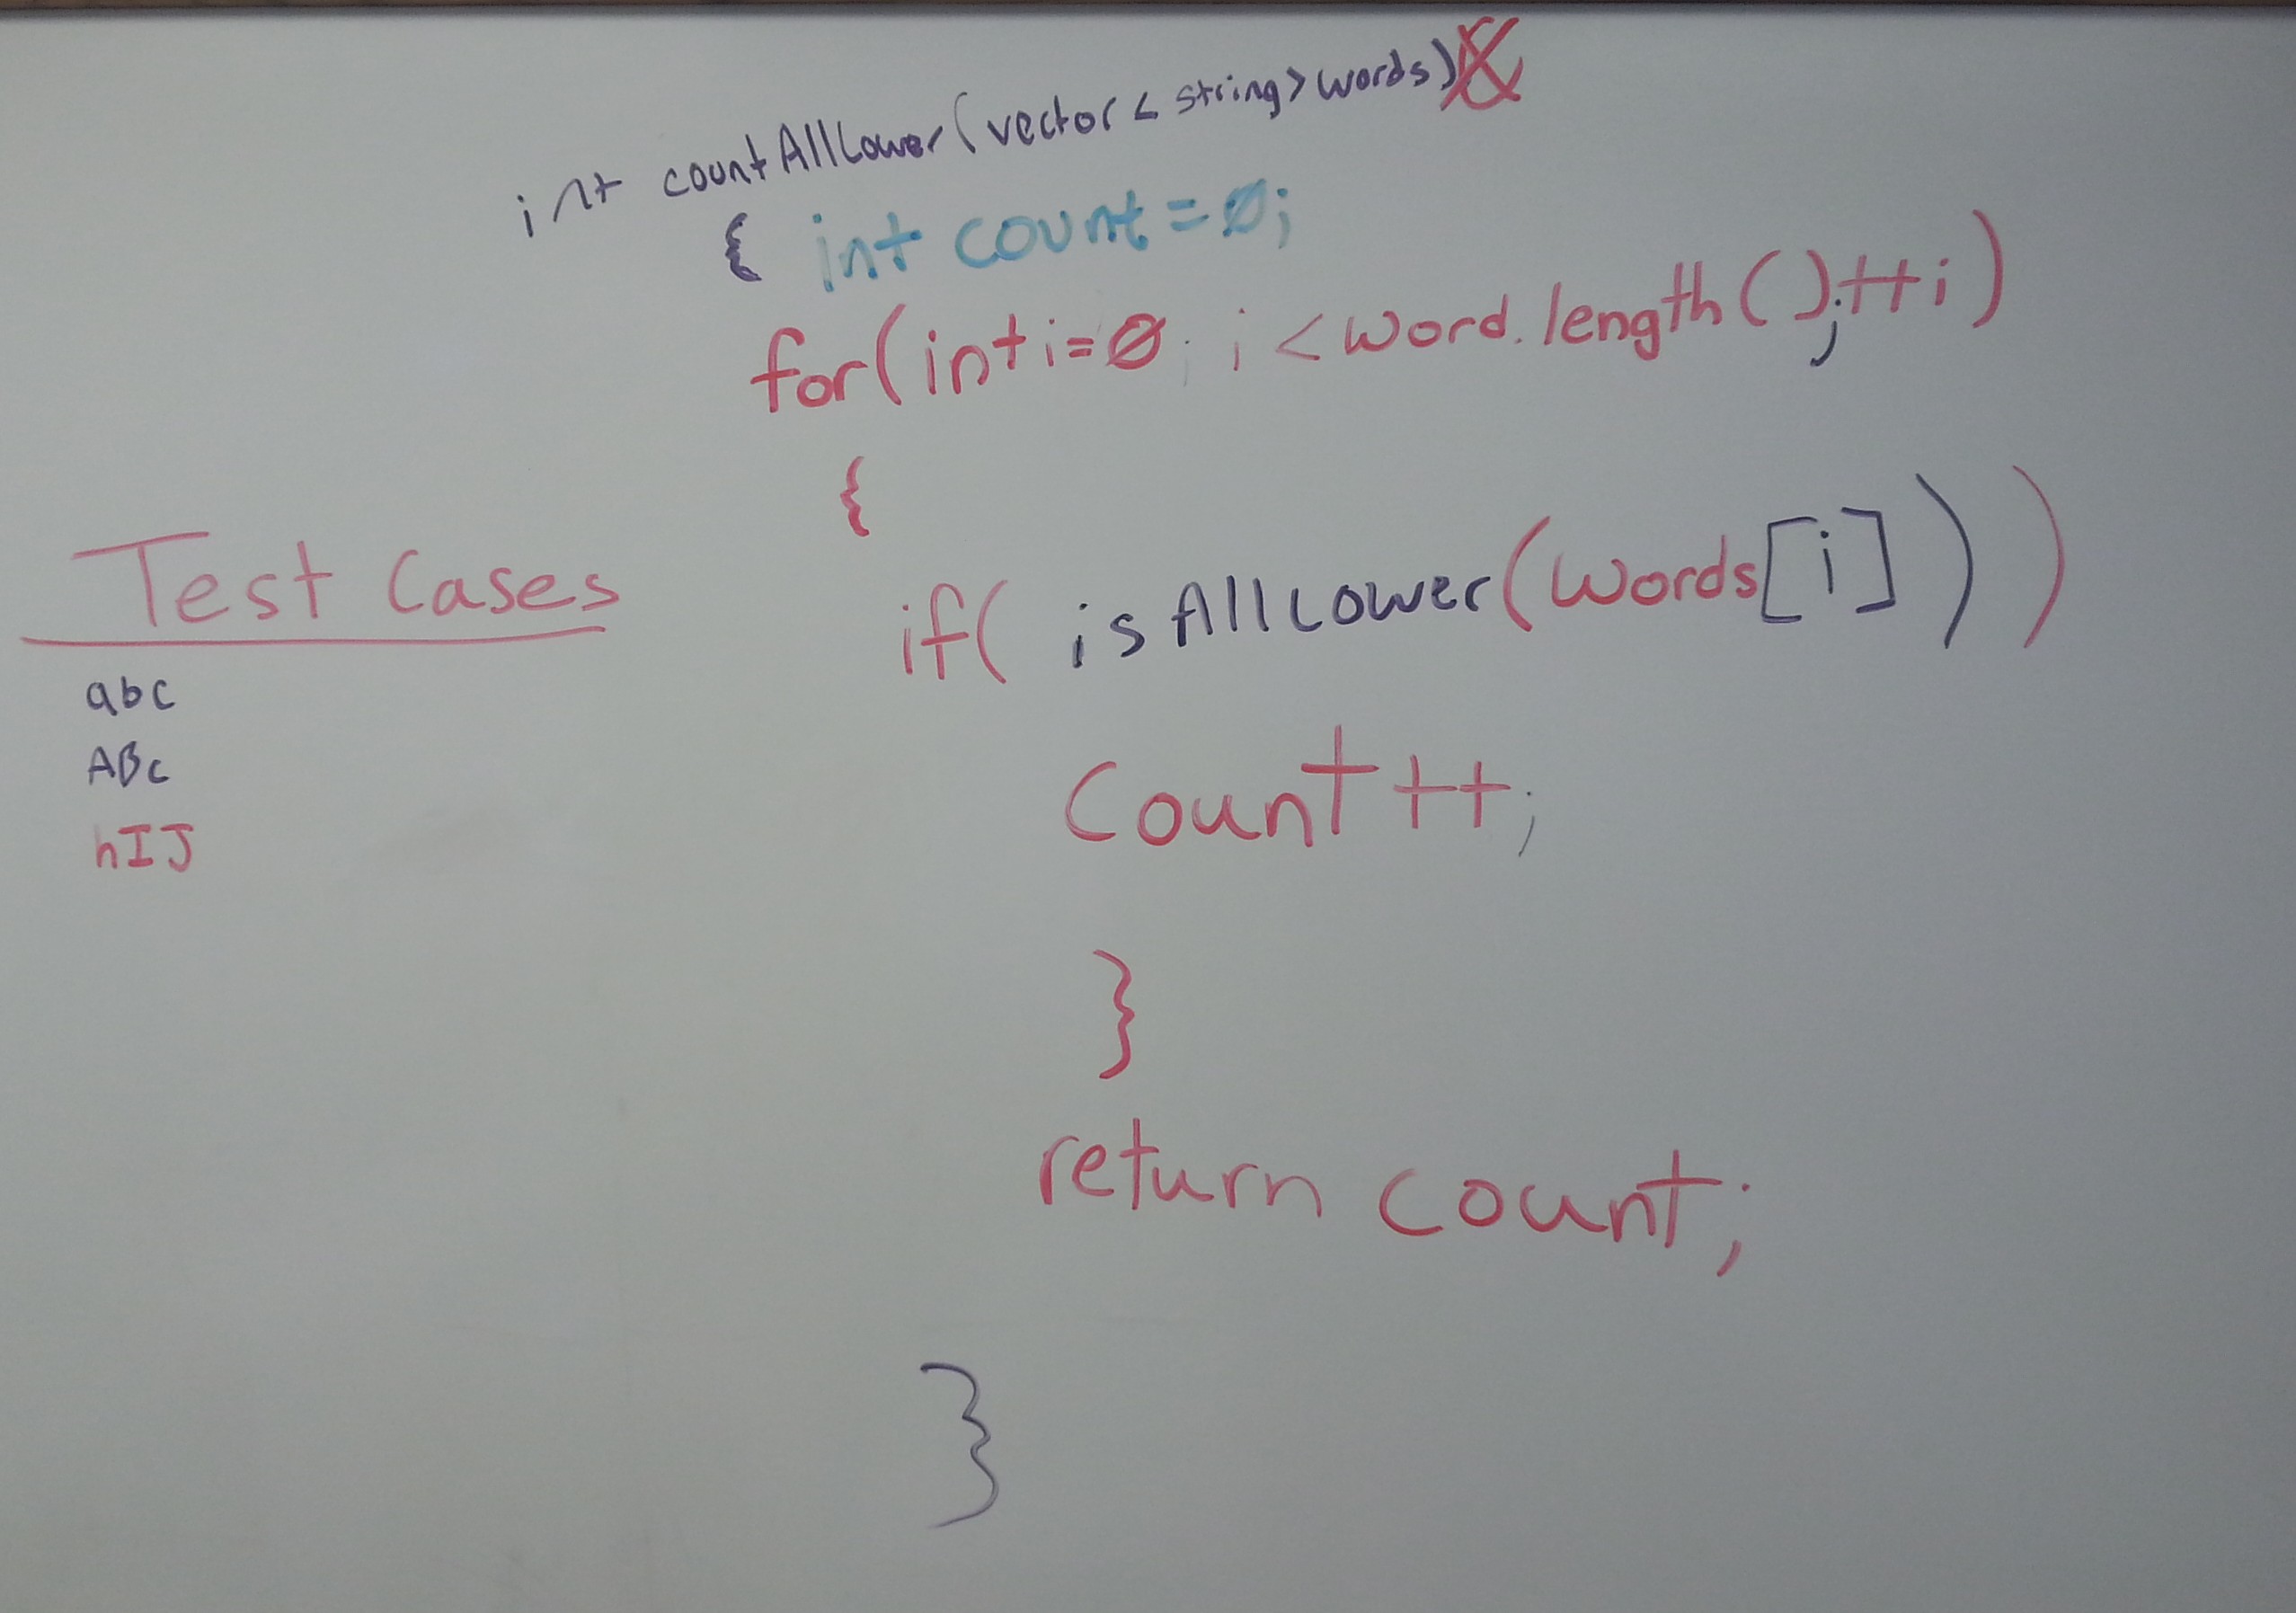 int countAllLower(vector<string>words)
{ int count=0;
for(int i=0; i<word.length();++i)
{
if( isAllLower(words[i]))
count++;
}
return count;
}
Test Cases
abc
ABc
hIJ